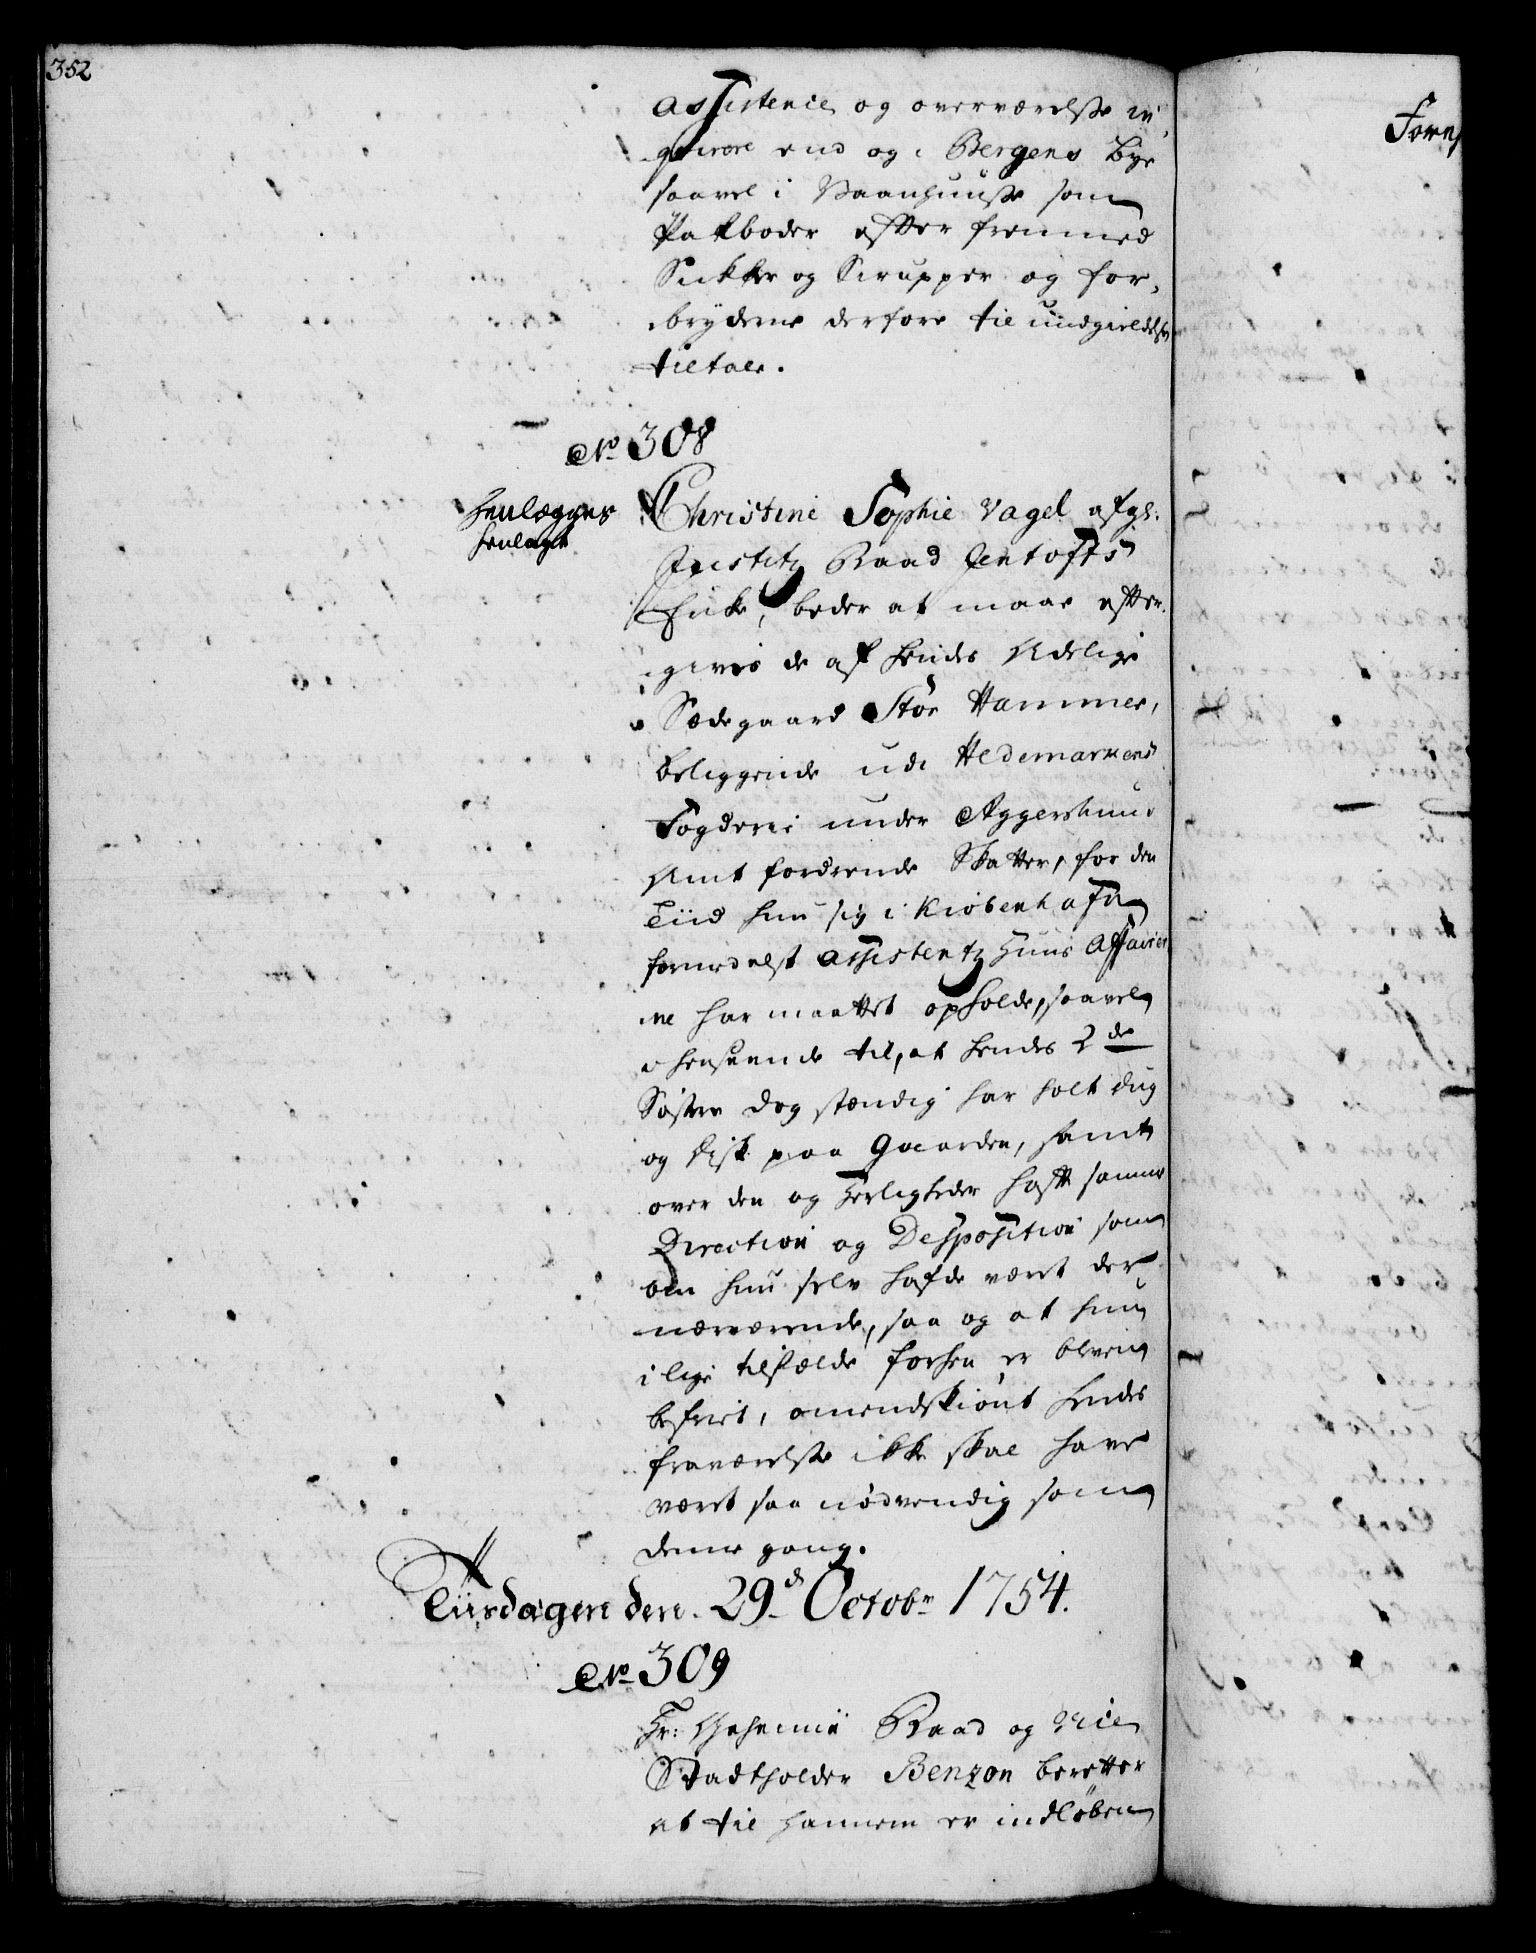 352
assistence og overværelse in¬
qvirere ind og i Bergens bye
saavel i Vaanhuuse som
Pakboder efter fremmed
Sukker og Sirupper og for¬
bryderne derfore til undgieldelse
tiltale.
No 308
Henlægges
henlagt
Christine Sophie Vagel afg:
Justitz Raad Jentofts
Enke, beder at maae efter¬
gives de af hendes Adelige
Sædegaard Stor Hammer,
beliggende udi Hedemarkens
Fogderie under Aggershuus
Amt fordrende Skatter, for den
Tiid hun sig i Kiøbenhafn
formedelst assistentz Huus Affairer
ne har maattet opholde, saavel
i henseende til, at hendes 2de
Søstre dog stændig har holt dug
og disk paa Gaarden, samt
over den og herligheder haft samme
Direction og Desposition som
om hun selv hafde været der
nærværende, saa og at hun
i lige tilfælde forhen er bleven
befriet, omendskiønt hendes
fraværelse ikke skal have
været saa nødvendig som
denne gang.
Tiirsdagen den 29de Octobr 1754.
No 309
Hr: Geheime Raad og Vice
Stadtholder Benzon beretter
at til hannem er indløben
Fore